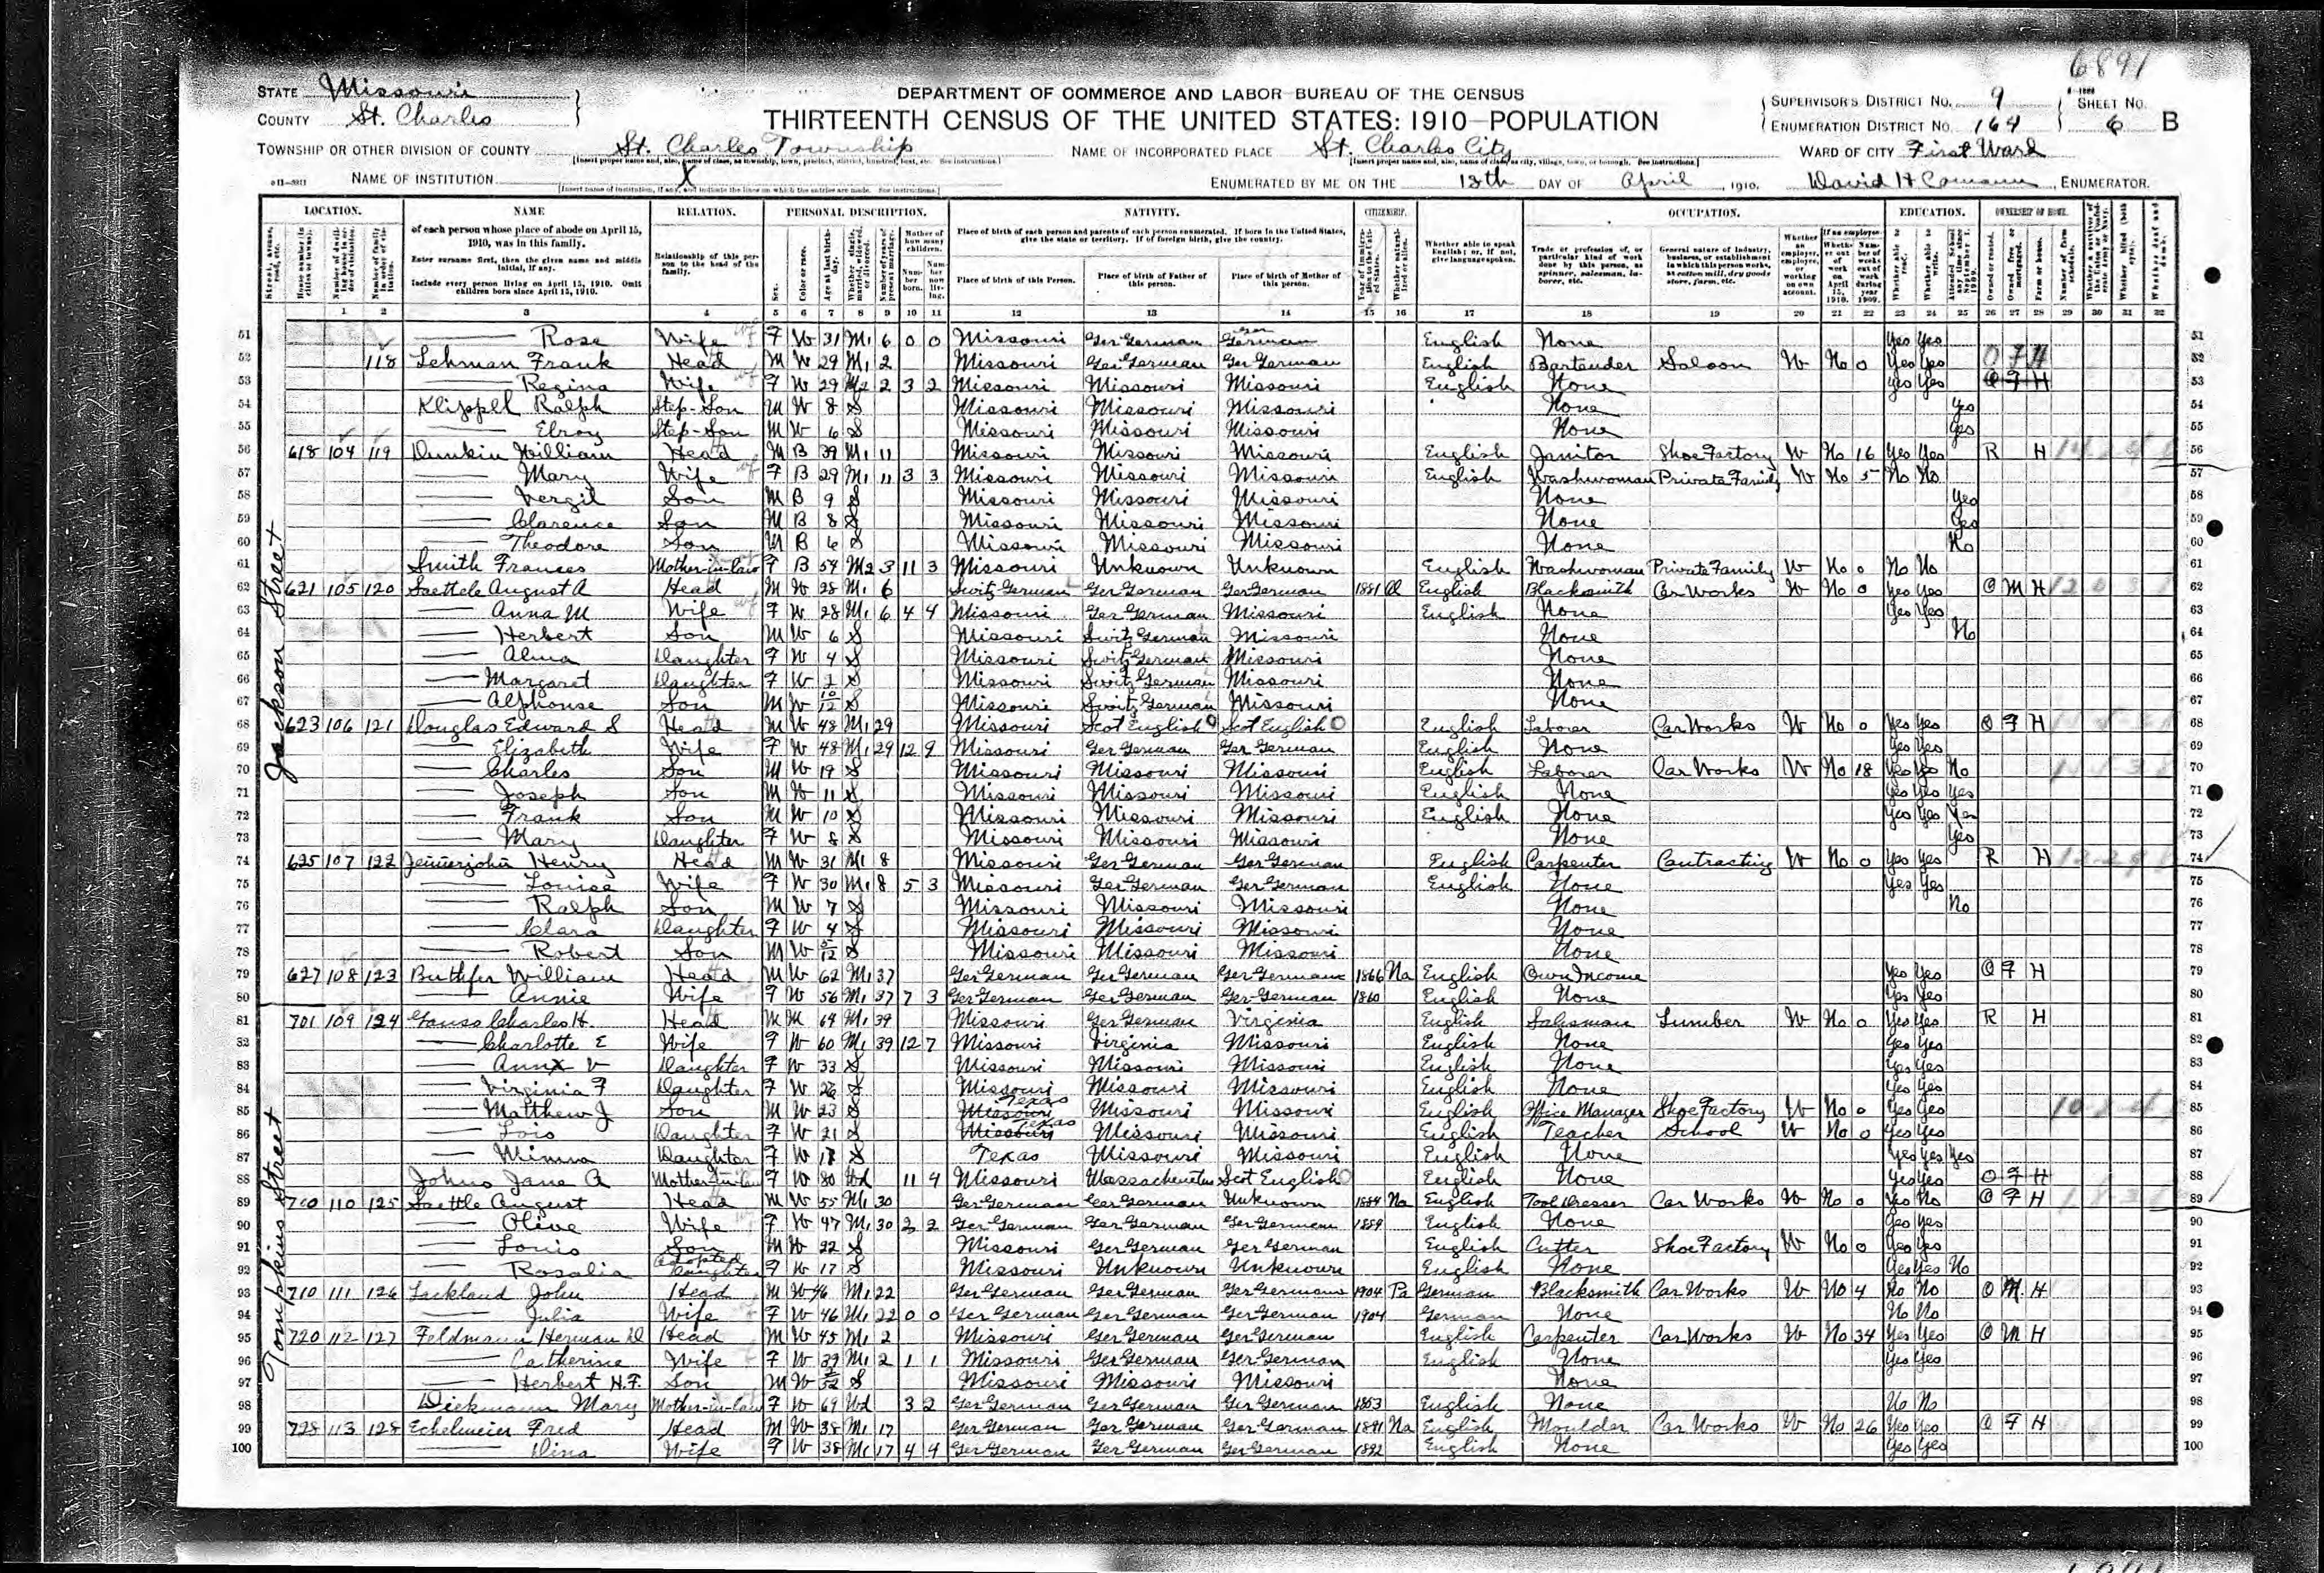 6891
STATE Missouri
COUNTY St. Charles
DEPARTMENT OF COMMERCE AND LABOR-BUREAU OF THE CENSUS
THIRTEENTH CENSUS OF THE UNITED STATES: 1910-POPULATION
SUPERVISOR'S DISTRICT NO. 9 SHEET NO.
ENUMERATION DISTRICT NO. 164 6 B
TOWNSHIP OR OTHER DIVISION OF COUNTY St. Charles Township NAME OF INCORPORATED PLACE St. Charles City WARD OF CITY First Ward
NAME OF INSTITUTION X ENUMERATED BY ME ON THE 18th DAY OF April, 1910. David H , ENUMERATOR.
LOCATION. NAME RELATION. PERSONAL DESCRIPTION. NATIVITY. CITIZENSHIP. OCCUPATION. EDUCATION. OWNERSHIP OF HOME.
of each person whose place of abode on April 15, 1910, was in this family.
Enter surname first, then the given name and middle initial, if any.
Include every person living on April 15, 1910. Omit children born since April 15, 1910.
Relationship of this person to the head of the family.
Place of birth of each person and parents of each person enumerated. If born in the United States, give the state or territory. If of foreign birth, give the country.
Place of birth of this Person. Place of birth of Father of this person. Place of birth of Mother of this person.
Whether able to speak English; or, if not, give language spoken.
1 2 3 4 5 6 7 8 9 10 11 12 13 14 15 16 17 18 19 20 21 22 23 24 25 26 27 28 29 30 31 32
Jackson Street
51 Rose Wife F W 31 M1 6 0 0 Missouri Ger German Ger German English None Yes Yes 51
52 118 Lehman Frank Head M W 29 M1 2 Missouri Ger German Ger German English Bartender Saloon W No 0 Yes Yes O F H 52
53 Regina Wife F W 29 M2 2 3 2 Missouri Missouri Missouri English None Yes Yes O F H 53
54 Klippel Ralph Step-Son M W 8 S Missouri Missouri Missouri None Yes 54
55 Elroy Step-Son M W 6 S Missouri Missouri Missouri None Yes 55
56 618 104 119 Dunkin William Head M B 39 M1 11 Missouri Missouri Missouri English Janitor Shoe Factory W No 16 Yes Yes R H 56
57 Mary Wife F B 29 M1 11 3 3 Missouri Missouri Missouri English Washwoman Private Family W No 5 No No 57
58 Vergil Son M B 9 S Missouri Missouri Missouri None Yes 58
59 Clarence Son M B 8 S Missouri Missouri Missouri None Yes 59
60 Theodore Son M B 6 S Missouri Missouri Missouri None No 60
61 Smith Frances Mother-in-law F B 54 M2 3 11 3 Missouri Unknown Unknown English Washwoman Private Family W No 0 No No 61
62 621 105 120 Saettele August A Head M W 28 M1 6 Switz German Ger German Ger German 1881 Al English Blacksmith Car Works W No 0 Yes Yes O M H 62
63 Anna M Wife F W 28 M1 6 4 4 Missouri Ger German Missouri English None Yes Yes 63
64 Herbert Son M W 6 S Missouri Switz German Missouri None No 64
65 Alma Daughter F W 4 S Missouri Switz German Missouri None 65
66 Margaret Daughter F W 2 S Missouri Switz German Missouri None 66
67 Alphonse Son M W 10/12 S Missouri Switz German Missouri None 67
68 623 106 121 Douglas Edward S Head M W 48 M1 29 Missouri Scot English Scot English English Laborer Car Works W No 0 Yes Yes O F H 68
69 Elizabeth Wife F W 48 M1 29 12 9 Missouri Ger German Ger German English None Yes Yes 69
70 Charles Son M W 19 S Missouri Missouri Missouri English Laborer Car Works W No 18 Yes Yes No 70
71 Joseph Son M W 11 S Missouri Missouri Missouri English None Yes Yes Yes 71
72 Frank Son M W 10 S Missouri Missouri Missouri English None Yes Yes Yes 72
73 Mary Daughter F W 8 S Missouri Missouri Missouri None Yes 73
74 625 107 122 Henry Head M W 31 M1 8 Missouri Ger German Ger German English Carpenter Contracting W No 0 Yes Yes R H 74
75 Louise Wife F W 30 M1 8 5 3 Missouri Ger German Ger German English None Yes Yes 75
76 Ralph Son M W 7 S Missouri Missouri Missouri None No 76
77 Clara Daughter F W 4 S Missouri Missouri Missouri None 77
78 Robert Son M W S Missouri Missouri Missouri None 78
79 627 108 123 William Head M W 62 M1 37 Ger German Ger German Ger German 1866 Na English Own Income Yes Yes O F H 79
80 Annie Wife F W 56 M1 37 7 3 Ger German Ger German Ger German 1860 English None Yes Yes 80
Tompkins Street
81 701 109 124 Gauss Charles H. Head M M 69 M1 39 Missouri Ger German Virginia English Salesman Lumber W No 0 Yes Yes R H 81
82 Charlotte E Wife F W 60 M1 39 12 7 Missouri Virginia Missouri English None Yes Yes 82
83 Anna V Daughter F W 33 S Missouri Missouri Missouri English None Yes Yes 83
84 Virginia F Daughter F W 26 S Missouri Missouri Missouri English None Yes Yes 84
85 Matthew J Son M W 23 S Missouri Texas Missouri Missouri English Office Manager Shoe Factory W No 0 Yes Yes 85
86 Lois Daughter F W 21 S Missouri Texas Missouri Missouri English Teacher School W No 0 Yes Yes 86
87 Minna Daughter F W 17 S Texas Missouri Missouri English None Yes Yes Yes 87
88 Johns Jane A Mother-in-law F W 80 Wd 11 4 Missouri Massachusetts Scot English English None Yes Yes O F H 88
89 710 110 125 Saettle August Head M W 55 M1 30 Ger German Ger German Unknown 1884 Na English Tool Dresser Car Works W No 0 Yes No O F H 89
90 Olive Wife F W 47 M1 30 2 2 Ger German Ger German Ger German 1889 English None Yes Yes 90
91 Louis Son M W 22 S Missouri Ger German Ger German English Cutter Shoe Factory W No 0 Yes Yes 91
92 Rosalia Adopted Daughter F W 17 S Missouri Unknown Unknown English None Yes Yes No 92
93 710 111 126 Lackland John Head M W 46 M1 22 Ger German Ger German Ger German 1904 Pa German Blacksmith Car Works W No 4 No No O M H 93
94 Julia Wife F W 46 M1 22 0 0 Ger German Ger German Ger German 1904 German None No No 94
95 720 112 127 Feldmann Herman D Head M W 45 M1 2 Missouri Ger German Ger German English Carpenter Car Works W No 34 Yes Yes O M H 95
96 Catherine Wife F W 39 M1 2 1 1 Missouri Ger German Ger German English None Yes Yes 96
97 Herbert H.F. Son M W S Missouri Missouri Missouri None 97
98 Diekmann Mary Mother-in-law F W 69 Wd 3 2 Ger German Ger German Ger German 1853 English None No No 98
99 728 113 128 Echelmeier Fred Head M W 38 M1 17 Ger German Ger German Ger German 1891 Na English Moulder Car Works W No 26 Yes Yes O F H 99
100 Dina Wife F W 38 M1 17 4 4 Ger German Ger German Ger German 1892 English None Yes Yes 100